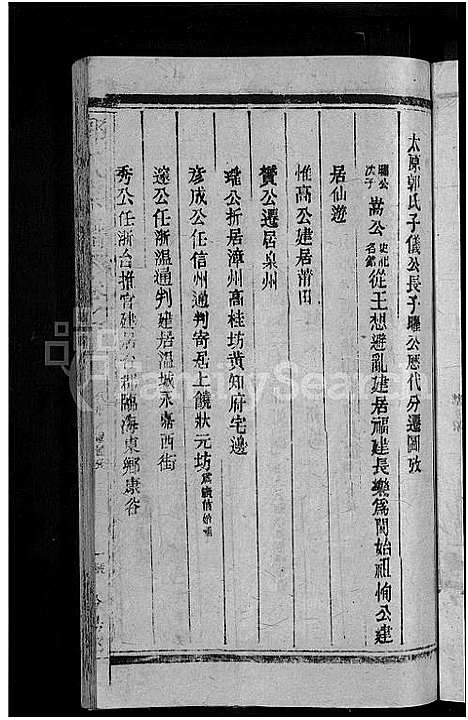 太原郭氏子儀公長子曜公歷代分遷圖攷
曜公次子嵩公史祀名鏘從王想避亂建居福建長樂爲閩始祖恂公建
居仙遊
惟高公建居莆田
贊公遷居泉州
瓏公折居漳州高桂坊黄知府宅邊
彦成公任信州通判寄居上饒狀元坊爲廣信始祖
遂公任浙溫通判建居溫城永嘉西街
秀公任浙台推官建居台郡臨海東鄉康谷
FamilySearch